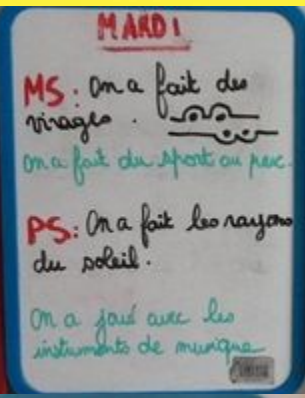 MARDI
MS: On a fait des
virages.
On a fait du sport au parc.
PS: On a fait les rayons
du soleil.
On a joué avec les
instruments de musique